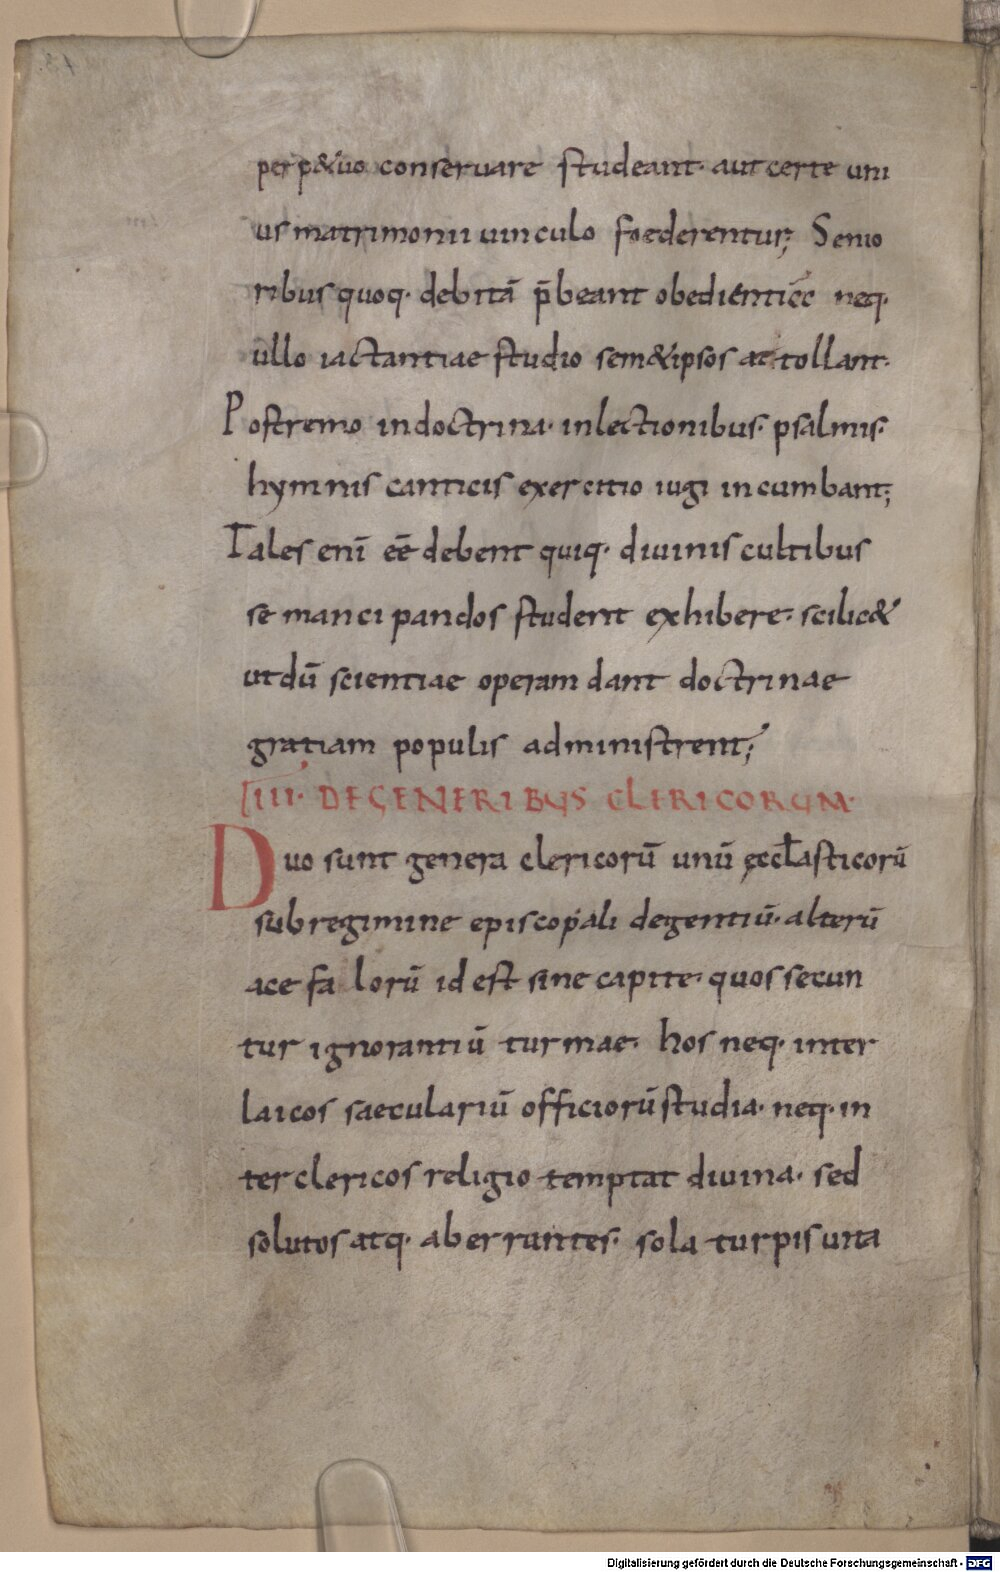 perp&uo conseruare studeant· aut certe uni
us matrimonii uinculo foederentur; Senio
ribus quoq· debitā p̄beant obedientiā neq·
ullo iactantiae studio sem&ipsos attollant·
Postremo in doctrina· in lectionibus· psalmis·
hymnis canticis exercitio iugi incumbant;
Tales enī eē debent quiq· diuinis cultibus
se mancipandos student exhibere· scilic&
ut dū scientiae operam dant doctrinae
gratiam populis administrent;
III· DE GENERIBUS CLERICORUM·
Duo sunt genera clericorū unū ęccłasticorū
sub regimine episcopali degentiū· alterū
acefalorū id est sine capite· quos secun
tur ignorantiū turmae· hos neq· inter
laicos saeculariū officiorū studia· neq· in
ter clericos religio temptat diuina· sed
solutos atq· aberrantes· sola turpis uita
Digitalisierung gefördert durch die Deutsche Forschungsgemeinschaft - DFG